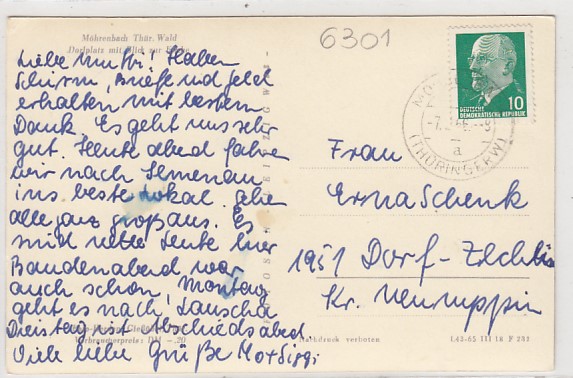 Möhrenbach Thür. Wald
Dorfplatz mit Blick zur Kirche
6301
Liebe Mutti! Haben
Schirm, Briefe und Geld
erhalten mit bestem
Dank. Es geht uns sehr
gut. Heute abend fahren
wir nach Ilmenau
ins beste Lokal. gehen
alle ganz groß aus. Es
sind nette Leute hier
Baudenabend war
auch schon, Montag
geht es nach Lauscha
Dienstag ist Abschiedsabend
Viele liebe Grüße
Verbraucherpreis: DM -.20
Nachdruck verboten
1.43-65 III 18 F 282
DEUTSCHE
DEMOKRATISCHE REPUBLIK
10
a
(THÜRINGERW)
Frau
Erna Schenk
1951 Dorf-Zechlin
Kr. Neuruppin